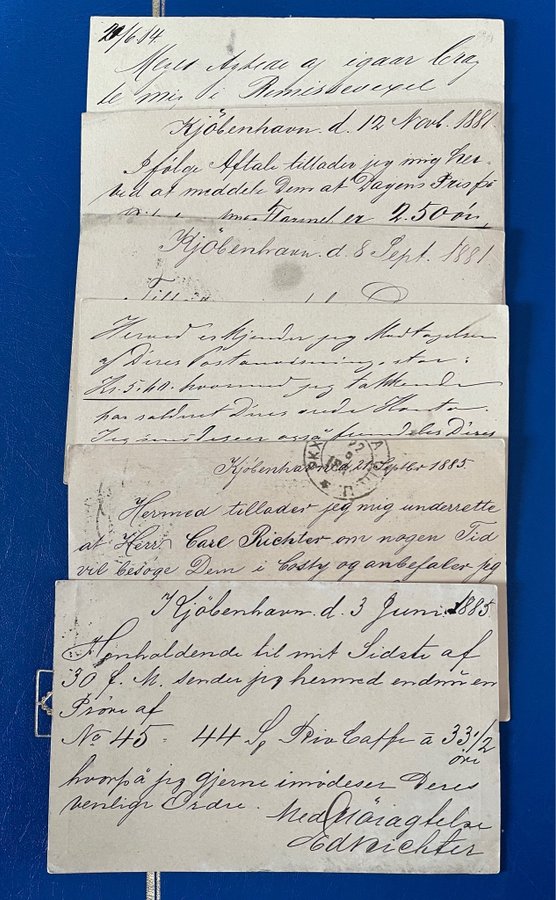 21/6.84
Meget Agtede af igaar
te mig i Remissevexel
Kjöbenhavn d. 12 Novb. 1881.
Ifölge Aftale tillader jeg mig her-
ved at meddele Dem at Dagens Pris på
er 2.50 öre,
Kjöbenhavn d. 8 Sept. 1881
Herved erkjender jeg Modtagelsen
af Deres Postanvisning, stor:
Kr. 5.40. hvormed jeg takkende
har salderet Deres ærede Konto.
Jeg imödeseer også fremdeles Deres
Kjöbenhavn d. 21 Septbr 1885.
Hermed tillader jeg mig underrette
at Herr Carl Richter om nogen Tid
vil besöge Dem i og anbefaler jeg
Kjöbenhavn d. 3 Juni 1885
Henholdende til mit Sidste af
30 f. M. sender jeg hermed endnu en
Pröve af
No 45 - 44 Rio Caffe à 33 1/2
öre
hvorpå jeg gjerne imödeser Deres
venlige Ordre.
Med Höiagtelse
Ed Richter